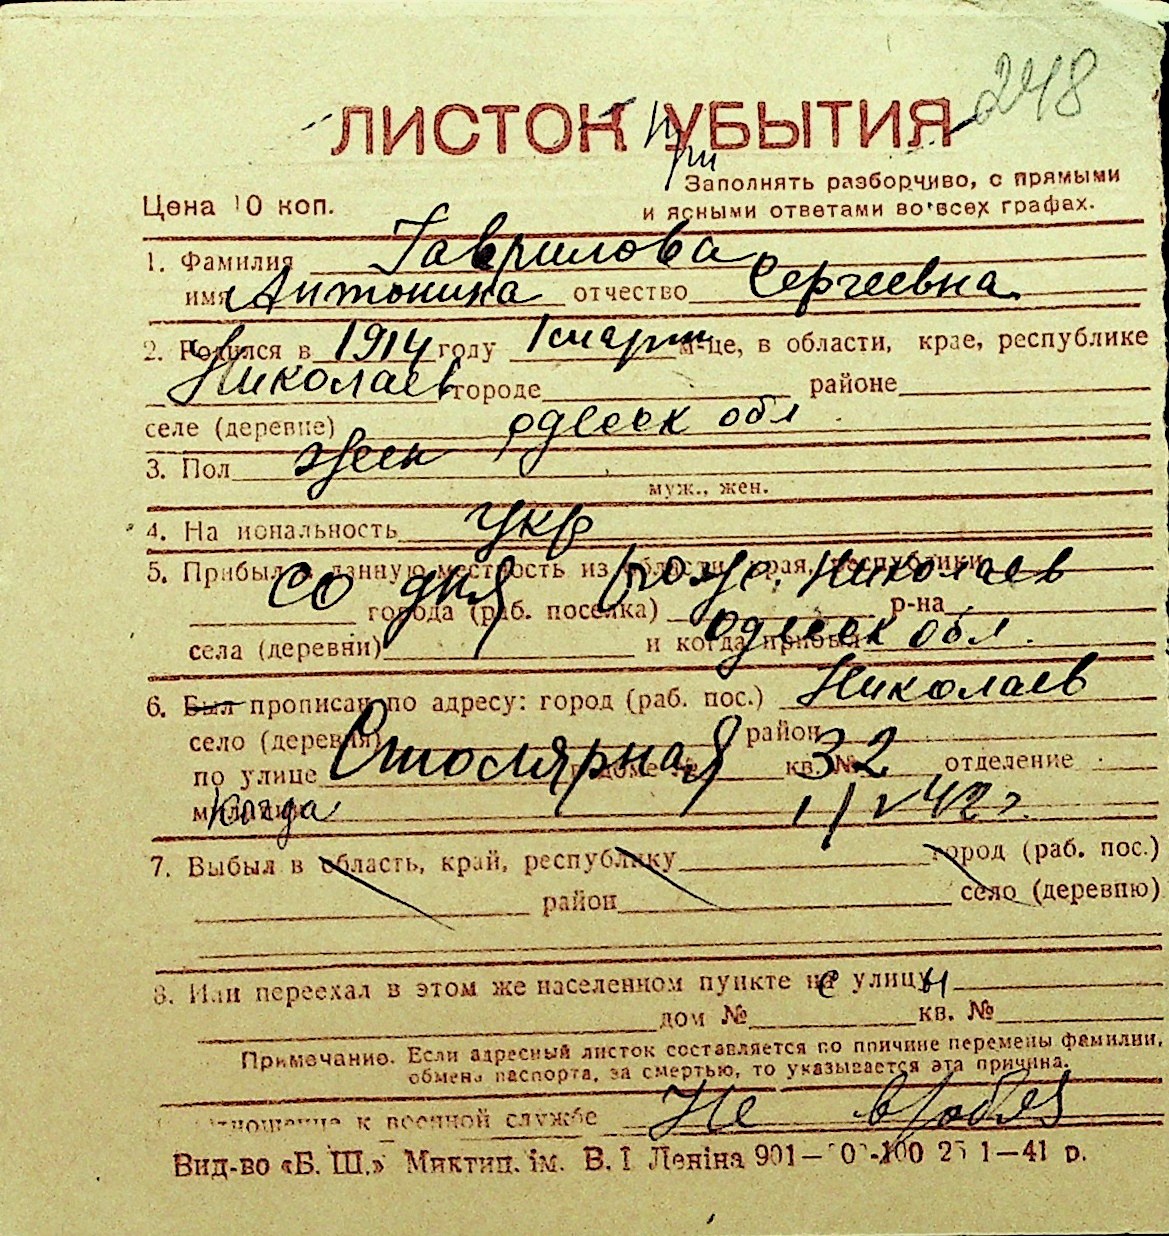 248
ЛИСТОК УБЫТИЯ
Заполнять разборчиво, с прямыми
Цена 10 коп.
и ясными ответами во всех графах.
1. Фамилия Гаврилова
имя Антонина отчество Сергеевна
2. Родился в 1914 году 1 март м-це, в области, крае, республике
Николаев городе районе
селе (деревне) одесск обл
3. Пол жен
муж., жен.
4. На иональность Укр
5. Прибыл в данную местность из области, края, республики
со дня рожд. Николаев
города (раб. поселка) р-на
одесск обл.
села (деревни) и когда прибыл
6. Был прописан по адресу: город (раб. пос.) Николаев
село (деревня) район
по улице Столярная доме № кв. № 32 отделение
милиции Когда 42 г.
7. Выбыл в область, край, республику город (раб. пос.)
район село (деревню)
8. Или переехал в этом же населенном пункте на улицу
дом № кв. №
Примечание. Если адресный листок составляется по причине перемены фамилии,
обмена паспорта, за смертью, то указывается эта причина.
Отношение к военной службе Не
Вид-во «Б. Ш.» Миктип. ім. В. І Леніна 901— 1—41 р.